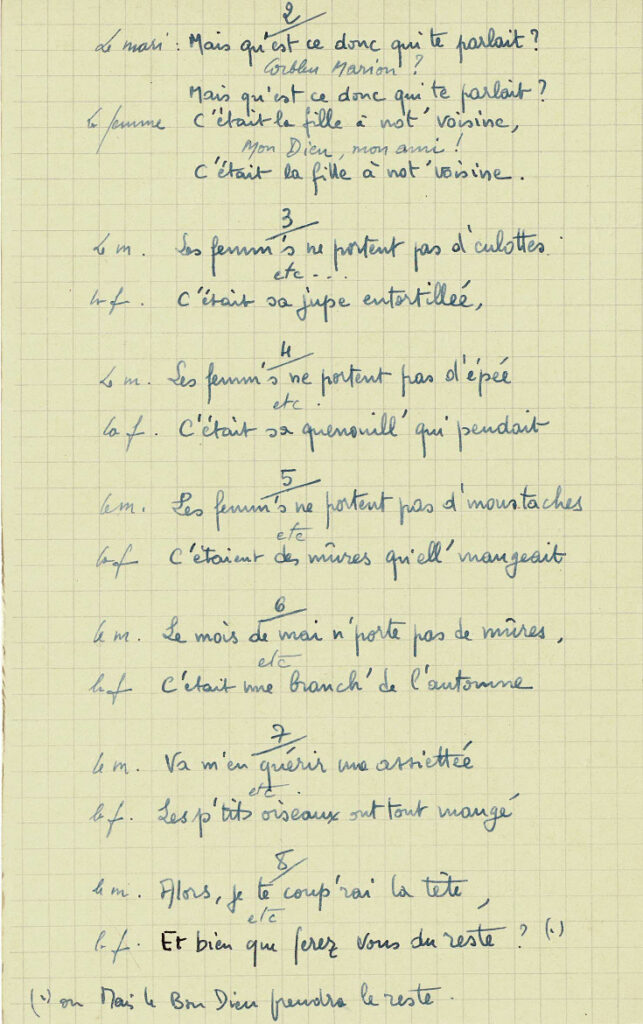 2
Le mari : Mais qu'est ce donc qui te parlait ?
Corbleu Marion ?
Mais qu'est ce donc qui te parlait ?
la femme C'était la fille à not' voisine,
Mon Dieu, mon ami !
C'était la fille à not' voisine.
3
Le m. Les femm's ne portent pas d'culottes.
etc...
la f. C'était sa jupe entortilleé,
4
Le m. Les femm's ne portent pas d'épée
etc.
la f. C'était sa quenouill' qui pendait
5
le m. Les femm's ne portent pas d'moustaches
etc
la f C'étaient des mûres qu'ell' mangeait
6
le m. Le mois de mai n'porte pas de mûres,
etc
la f C'était une branch' de l'automne
7
le m. Va m'en quérir une assietteé
etc.
la f. Les p'tits oiseaux ont tout mangé
8
le m. Alors, je te coup'rai la tête,
etc
la f. Et bien que ferez vous du reste ? (.)
(.) ou Mais le Bon Dieu prendra le reste.